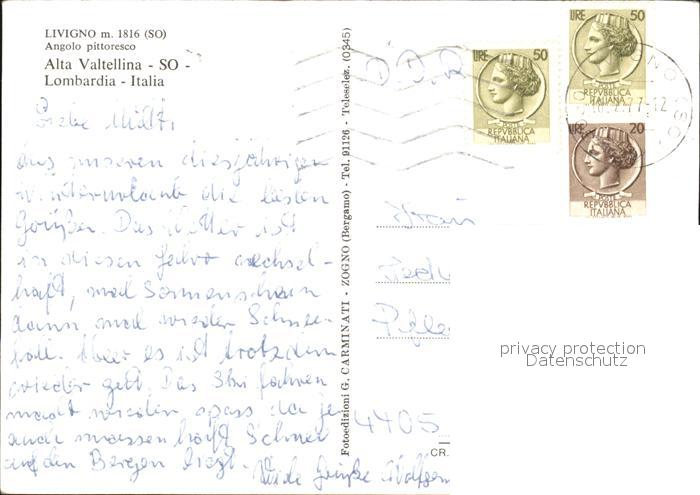 LIVIGNO m. 1816 (SO)
Angolo pittoresco
Alta Valtellina - SO -
Lombardia - Italia
Liebe Mutti,
aus unseren diesjährigen
Winterurlaub die besten
Grüße. Das Wetter ist
in diesem Jahr wechsel-
haft, mal Sonnenschein
dann mal wieder Schnee-
fall. Aber es ist trotzdem
wieder gut. Das Ski fahren
macht wieder spass da ja
auch massenhaft Schnee
auf den Bergen liegt.
Viele Grüße Wolfgan
Fotoedizioni G. CARMINATI - ZOGNO (Bergamo) - Tel. 91126 - Teleselez. (0345)
LIRE 50
POSTE
REPVBBLICA
ITALIANA
LIRE 50
POSTE
REPVBBLICA
ITALIANA
LIRE 20
POSTE
REPVBBLICA
ITALIANA
Frau
4405
CR.
privacy protection
Datenschutz